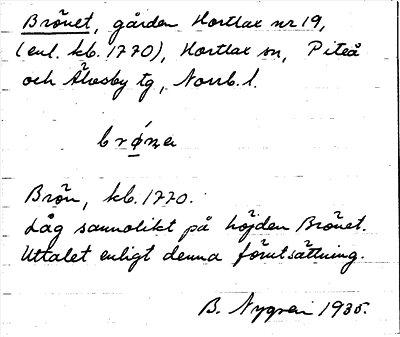 Brönet, gården Hortlax nr 19,
(enl. kb. 1770), Hortlax sn, Piteå
och Älvsby tg, Norrb. l.
Brön, kb. 1770.
Låg sannolikt på höjden Brönet.
Uttalet enligt denna förutsättning.
B. Nygren 1935.